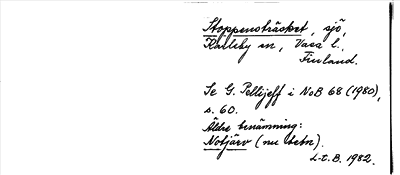 Stoppensträsket, sjö,
Karleby sn, Vasa l.,
Finland.
Se G. Pellijeff i NoB 68 (1980),
s. 60.
Äldre benämning:
Notjärv (nu betn).
L-t. B. 1982.